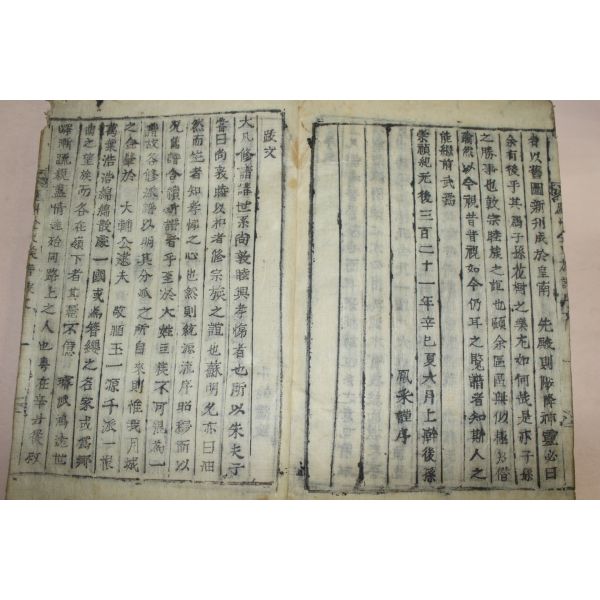 者以舊圖新刊成於皇南 先陵則陟降神靈必曰
余有後乎其爲子孫花樹之樂尤如何哉是亦子孫
之勝事也敦宗睦族之誼也顧余區區無似極爲僭
然以今視昔昔視如今仍耳之覽譜者知斯人之
能繼前武
崇禎紀元後三百二十一年辛巳夏六月上幹後孫
鳳采謹序
跋文
大凡修譜講世系尚敦睦興孝悌者也所以朱夫子
嘗曰尚衣時以和者修宗族之誼也蘇明允亦曰油
然而生者知孝悌之心也然則統源流序昭穆而以
況舊譜合續新譜者乎至於大姓巨族不可混爲一
譜故各修派譜以明其分派之所自來則惟我月城
之金肇於 大輔公逮夫 敬順王一源千派一根
萬葉浩浩綿綿散處一國或爲簪纓之名家或爲鄉
曲之望族而各在領下者其麗不億 世
疏親盡情遠殆同路上之人也粤在辛